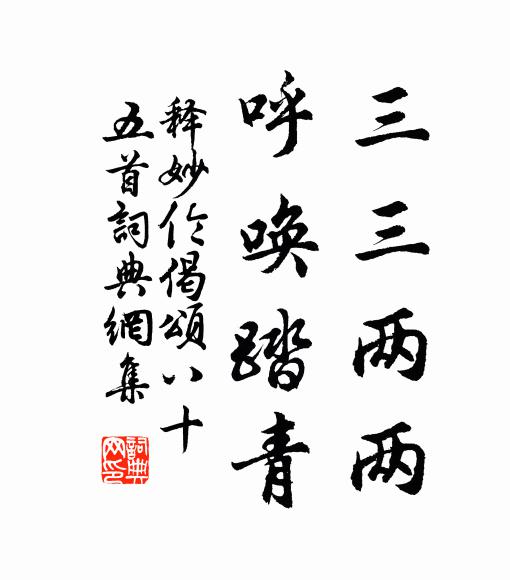 三三两两
呼唤踏青
释妙伦偈颂八十
五首詞典網集
詞典网印